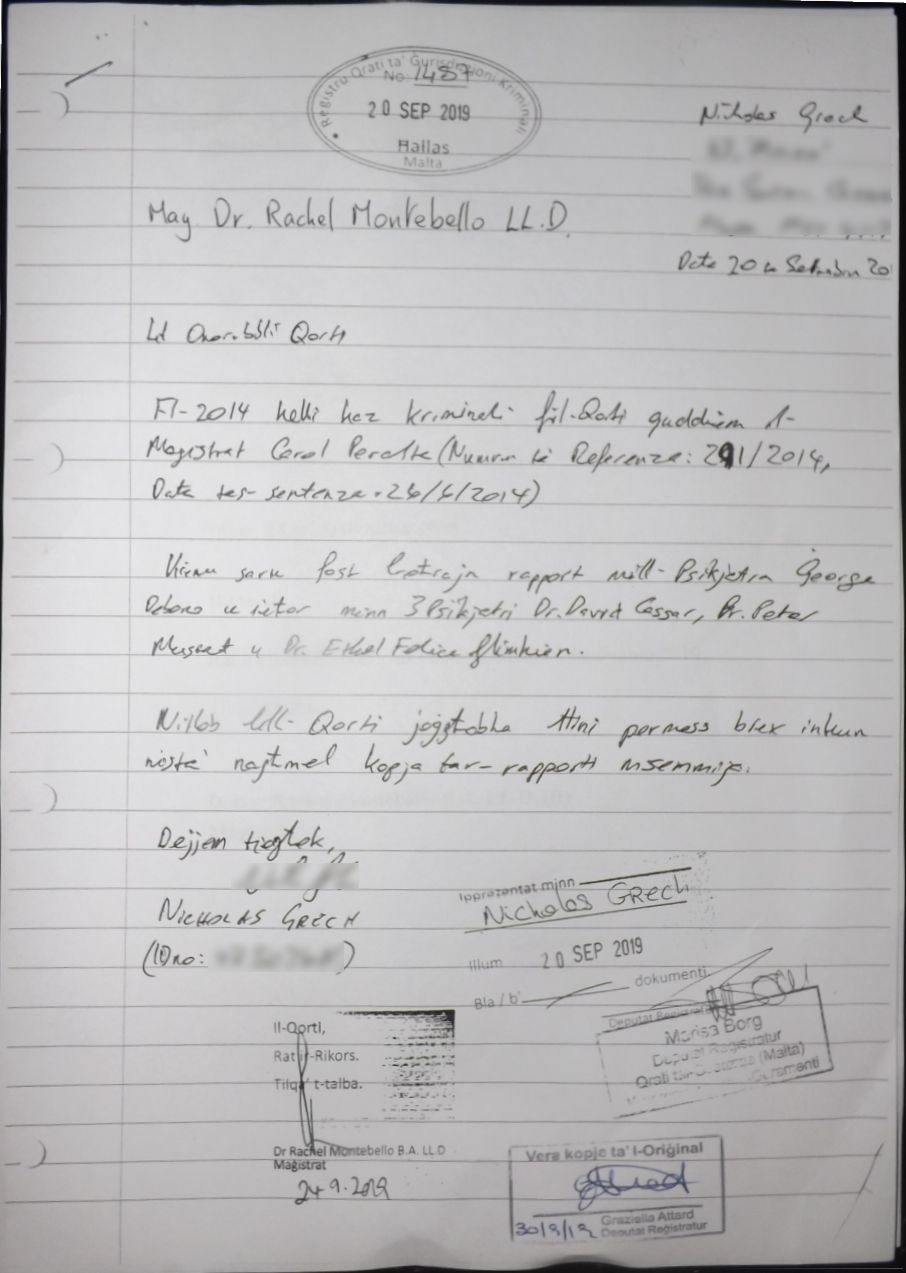 Reġistru Qrati ta' Ġurisdizzjoni Kriminali
No. 1487
20 SEP 2019
Ħallas
Malta
Nicholas Grech
Maġ. Dr. Rachel Montebello LL.D.
Data 20 ta Settembru 20
Lil Onorabbli Qorti
Fl-2014 kelli każ kriminali fil-Qorti quddiem il-
Maġistrat Carol Peralta (Numru ta Referenza: 291/2014,
Data tas-sentenza: 26/6/2014)
Kienu saru fost oħrajn rapport mill-Psikjatra George
Debono u ieħor minn 3 Psikjatri Dr. David Cassar, Dr. Peter
Muscat u Dr. Ethel Felice flimkien.
Nitlob lill-Qorti jogħġobha ttini permess biex inkun
nista' nagħmel kopja tar-rapporti msemmija.
Dejjem tiegħek,
NICHOLAS GRECH
(ID no: )
Ippreżentat minn
Nicholas Grech
Illum 20 SEP 2019
Bla / b' dokumenti
Deputat Reġistratur
Marisa Borg
Deputat Reġistratur
Qrati tal-Ġustizzja (Malta)
Il-Qorti,
Rat ir-Rikors.
Tilqa' t-talba.
Dr Rachel Montebello B.A. LL.D
Maġistrat
24.9.2019
Vera kopje ta' l-Oriġinal
30/9/19 Graziella Attard
Deputat Reġistratur